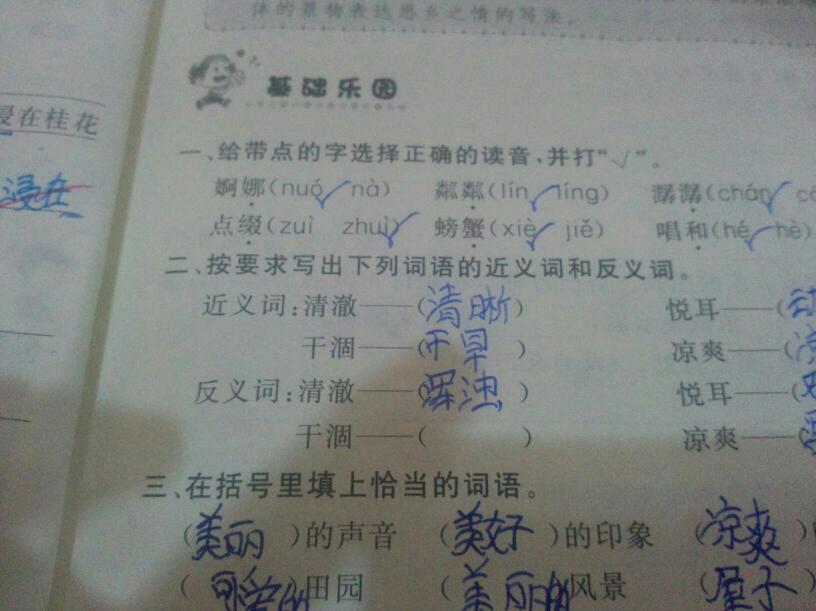 体的景物表达思乡之情的写法。
基础乐园
浸在桂花
浸在
一、给带点的字选择正确的读音,并打“√”。
婀娜(nuó✓ nà) 粼粼(lín✓ líng) 潺潺(chán✓
点缀(zuì zhuì✓) 螃蟹(xiè✓ jiě) 唱和(hé✓ hè)
二、按要求写出下列词语的近义词和反义词。
近义词:清澈——(清晰) 悦耳——(动
干涸——(干旱) 凉爽——(
反义词:清澈——(浑浊) 悦耳——(
干涸——( ) 凉爽——(
三、在括号里填上恰当的词语。
(美丽)的声音 (美好)的印象 (凉爽)
( )田园 (美丽的风景 (